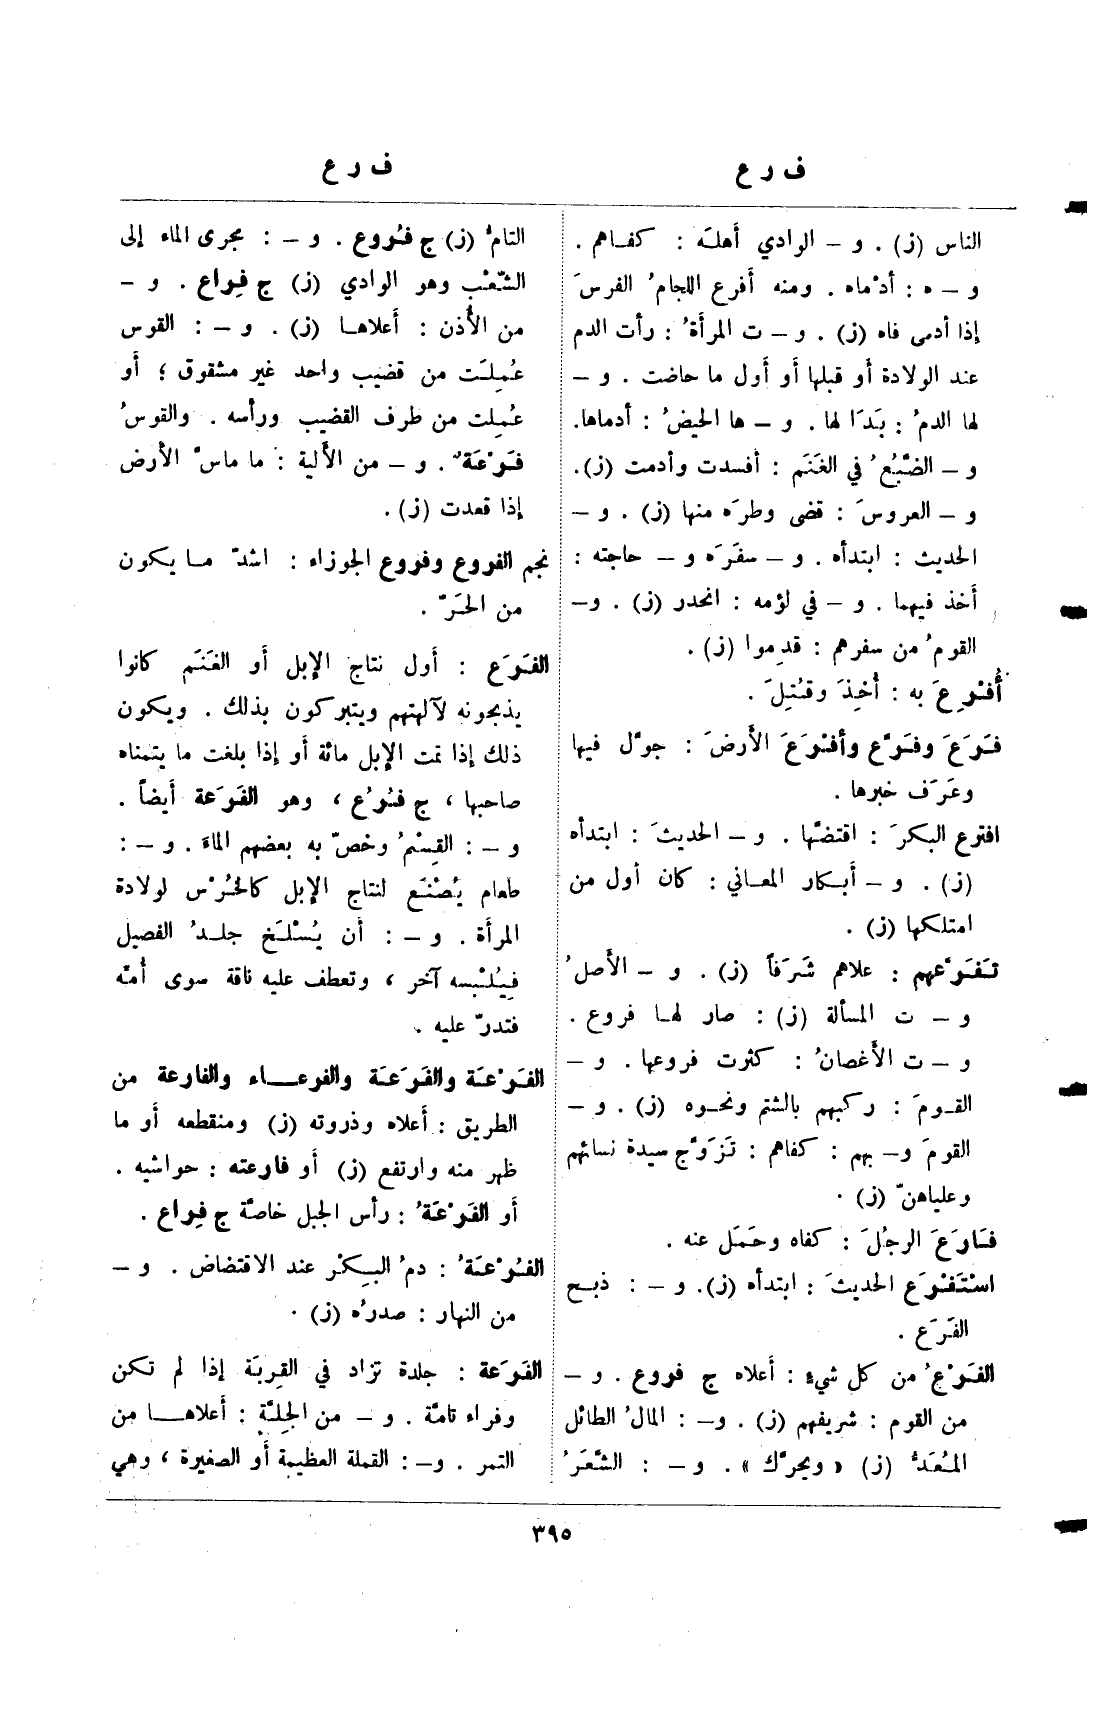 ف ر ع
ف ر ع
الناس (ز) . و – الوادي أهلَه : كفاهم .
و – ه : أدْماه . ومنه أفرع اللجامُ الفرسَ
إذا أدمى فاه (ز) . و – ت المرأةُ : رأت الدم
عند الولادة أو قبلها أو أول ما حاضت . و –
لها الدمُ : بَدَا لها . و – ها الحيضُ : أدماها.
و – الضَّبُعُ في الغَنَم : أفسدت وأدمت (ز).
و – العروسَ : قضى وطرَه منها (ز) . و –
الحديث : ابتدأه . و – سفَرَه و – حاجته :
أخذ فيهما . و – في لؤمه : انحدر (ز) . و–
القومُ من سفرهم : قدِموا (ز) .
أُفْرِعَ به : أُخِذَ وقُتِلَ .
فَرَعَ وفَرَّع وأفْرَعَ الأرضَ : جوَّل فيها
وعَرَف خبرها .
افترع البكرَ : اقتضَّها . و – الحديثَ : ابتدأه
(ز) . و – أبكار المعاني : كان أول من
امتلكها (ز) .
تَفَرَّعهم : علاهم شَرَفاً (ز) . و – الأصلُ
و – ت المسألة (ز) : صار لها فروع .
و – ت الأغصانُ : كثرت فروعها . و –
القومَ : ركبهم بالشتم ونحوه (ز) . و –
القومَ و– بهم : كفاهم : تَزَوَّج سيدة نسائهم
وعلياهنّ (ز) .
فَارَعَ الرجُلَ : كفاه وحَمَل عنه .
اسْتَفْرَع الحديثَ : ابتدأه (ز). و – : ذبح
الفَرَع .
الفَرْعُ من كل شيءٍ : أعلاه ج فروع . و –
من القوم : شريفهم (ز) . و– : المالُ الطائل
المُعَدُّ (ز) « ويحرَّك » . و – : الشَّعَرُ
التامُّ (ز) ج فُروع . و – : مجرى الماء إلى
الشِّعْب وهو الوادي (ز) ج فِراع . و –
من الأُذن : أعلاها (ز) . و – : القوس
عُمِلَت من قضيب واحد غير مشقوق ؛ أو
عُمِلت من طرف القضيب ورأسه . والقوسُ
فَرْعَةٌ . و – من الألية : ما ماسَّ الأرض
إذا قعدت (ز) .
نجم الفروع وفروع الجوزاء : اشدّ ما يكون
من الحَرّ .
الفَرَع : أول نتاج الإبل أو الغَنَم كانوا
يذبحونه لآلهتهم ويتبركون بذلك . ويكون
ذلك إذا تمت الإبل مائة أو إذا بلغت ما يتمناه
صاحبها ، ج فُرُع ، وهو الفَرَعة أيضاً .
و – : القِسْمُ وخصّ به بعضهم الماءَ . و – :
طعام يُصْنَع لنتاج الإبل كالخُرْس لولادة
المرأة . و – : أن يُسْلَخ جلدُ الفصيل
فيُلْبسه آخر ، وتعطف عليه ناقة سوى أمّه
فتدرّ عليه .
الفَرْعَة والفَرَعَة والفرعاء والفارعة من
الطريق : أعلاه وذروته (ز) ومنقطعه أو ما
ظهر منه وارتفع (ز) أو فارعته : حواشيه .
أو الفَرْعَةُ : رأس الجبل خاصّة ج فِراع .
الفُرْعَةُ : دمُ البِكْر عند الاقتضاض . و –
من النهار : صدرُه (ز) .
الفَرَعة : جلدة تزاد في القِربَة إذا لم تكن
وفراء تامّة . و – من الجِلّة : أعلاها من
التمر . و– : القملة العظيمة أو الصغيرة ، وهي
٣٩٥